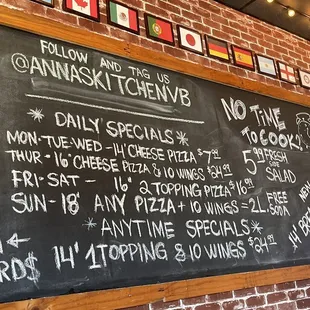 FOLLOW AND TAG US
@ANNASKITCHENVB
DAILY SPECIALS
MON-TUE-WED-14" CHEESE PIZZA $7.99
THUR-16" CHEESE PIZZA & 10 WINGS $24.99
FRI-SAT-16" 2 TOPPING PIZZA $16.99
SUN-18" ANY PIZZA + 10 WINGS = 2L FREE SODA
ANYTIME SPECIALS
14" 1 TOPPING & 10 WINGS $24.99
NO TIME
TO COOK?
5.99 FRESH
SALAD
NEW
14" B
RD$